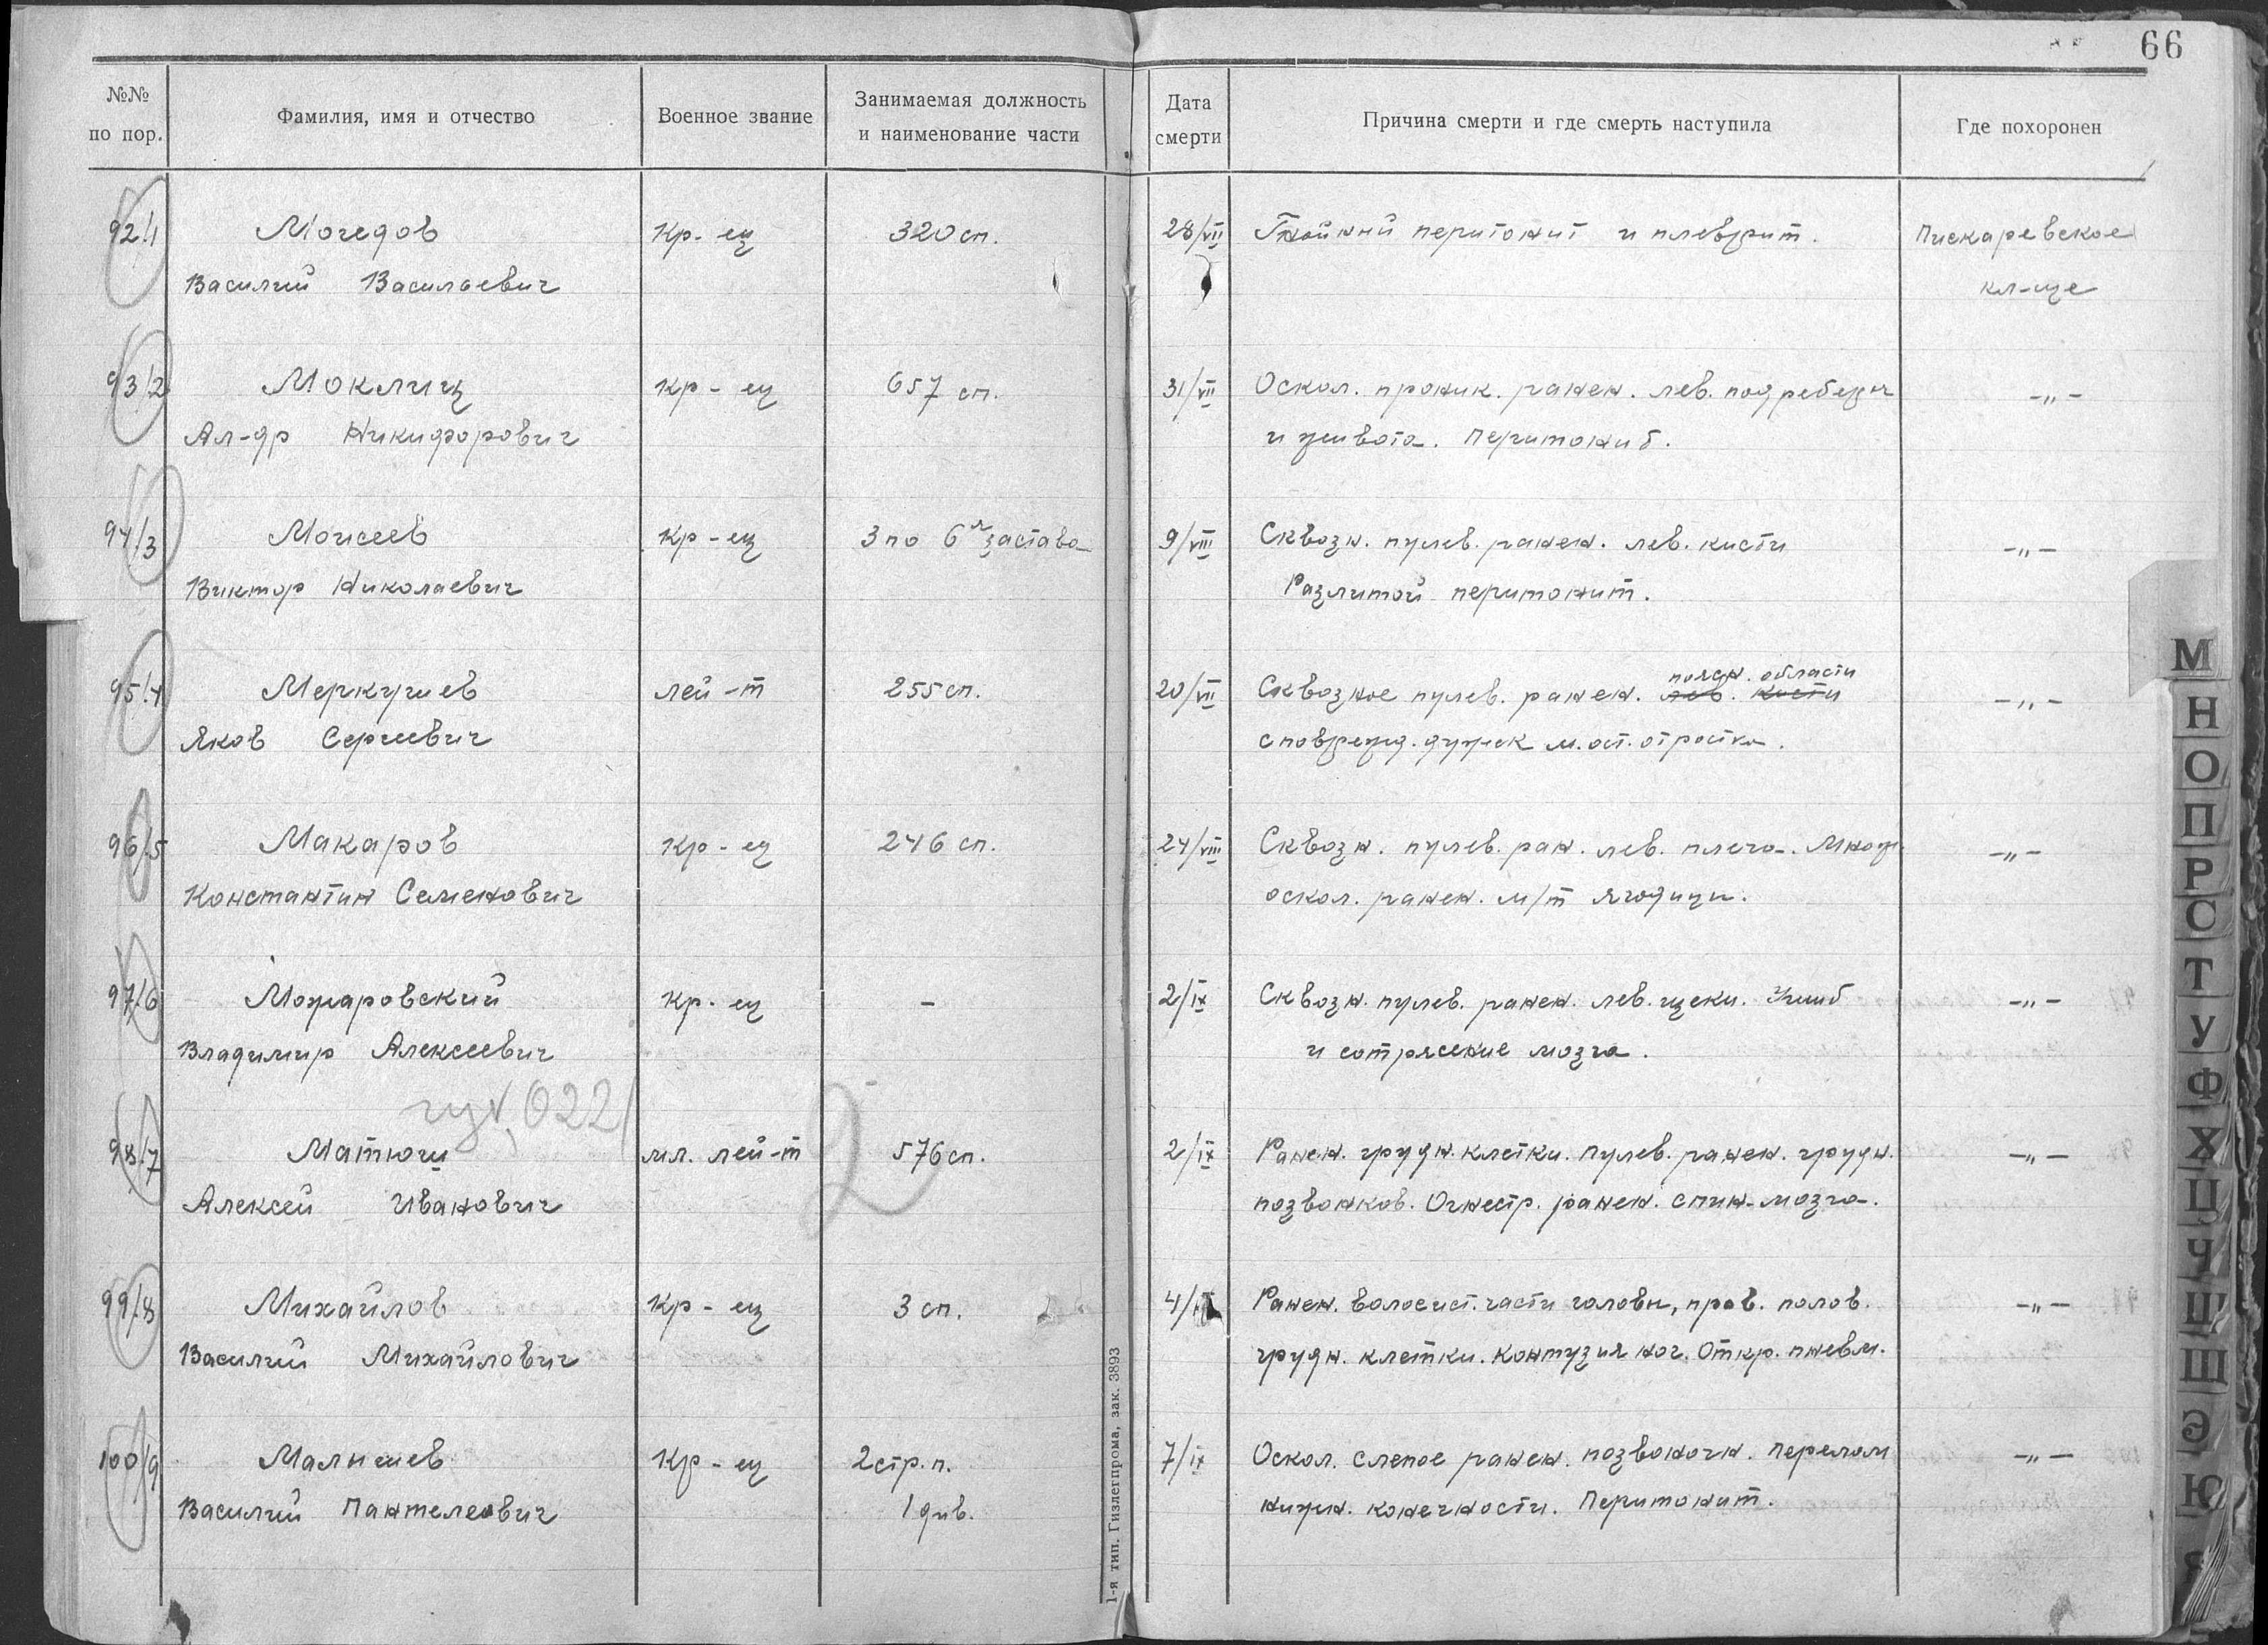 66
№№ по пор. Фамилия, имя и отчество Военное звание Занимаемая должность и наименование части Дата смерти Причина смерти и где смерть наступила Где похоронен
92/1 Могедов Кр-ец 320 сп. 28/VII Гнойный перитонит и плеврит. Пискаревское
Василий Васильевич кл-ще
93/2 Моклиц Кр-ец 657 сп. 31/VII Оскол. проник. ранен. лев. подреберья -"-
Ал-др Никифорович и живота. Перитонит.
94/3 Моисеев Кр-ец 3 по 6я застава 9/VIII Сквозн. пулев. ранен. лев. кисти -"-
Виктор Николаевич Разлитой перитонит.
95/4 Меркушев лей-т 255 сп. 20/VII Сквозное пулев. ранен. лев. кисти поясн. области -"-
Яков Сергеевич с поврежд. дужек м. ост. отростка.
96/5 Макаров Кр-ец 246 сп. 24/VIII Сквозн. пулев. ран. лев. плеча. Множ. -"-
Константин Семенович оскол. ранен. м/т ягодицы.
97/6 Можаровский Кр-ец - 2/IX Сквозн. пулев. ранен. лев. щеки. Ушиб -"-
Владимир Алексеевич и сотрясение мозга.
022 2
98/7 Матюш мл. лей-т 576 сп. 2/IX Ранен. грудн. клетки. пулев. ранен. грудн. -"-
Алексей Иванович позвонков. Огнестр. ранен. спин. мозга.
99/8 Михайлов Кр-ец 3 сп. 4/IX Ранен. волосист. части головы, прав. полов. -"-
Василий Михайлович грудн. клетки. Контузия ног. Откр. пневм.
100/9 Малышев Кр-ец 2 стр. п. 7/IX Оскол. слепое ранен. позвоночн. Перелом -"-
Василий Пантелеевич 1 див. нижн. конечности. Перитонит.
1-я тип. Гизлегпрома, зак. 3893
М
Н
О
П
Р
С
Т
У
Ф
Х
Ц
Ч
Ш
Щ
Э
Ю
Я